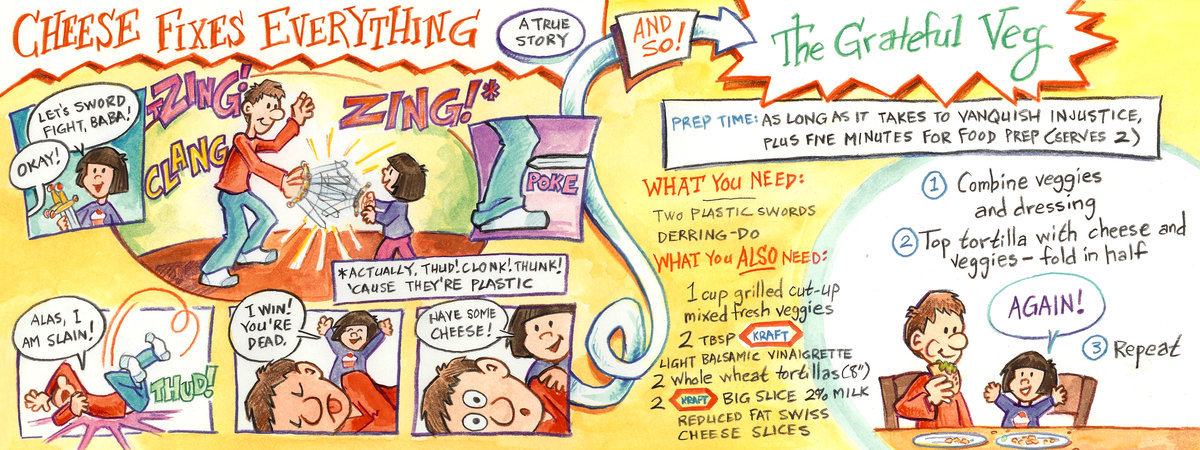 CHEESE FIXES EVERYTHING
A TRUE
STORY
LET'S SWORD
FIGHT, BABA!
OKAY!
ZING!
CLANG
ZING!*
POKE
*ACTUALLY, THUD! CLONK! THUNK!
'CAUSE THEY'RE PLASTIC
ALAS, I
AM SLAIN!
THUD!
I WIN!
YOU'RE
DEAD.
HAVE SOME
CHEESE!
AND
SO!
The Grateful Veg
PREP TIME: AS LONG AS IT TAKES TO VANQUISH INJUSTICE,
PLUS FIVE MINUTES FOR FOOD PREP (SERVES 2)
WHAT YOU NEED:
TWO PLASTIC SWORDS
DERRING-DO
WHAT YOU ALSO NEED:
1 cup grilled cut-up
mixed fresh veggies
2 TBSP KRAFT
LIGHT BALSAMIC VINAIGRETTE
2 whole wheat tortillas (8")
2 KRAFT BIG SLICE 2% MILK
REDUCED FAT SWISS
CHEESE SLICES
1 Combine veggies
and dressing
2 Top tortilla with cheese and
veggies – fold in half
AGAIN!
3 Repeat